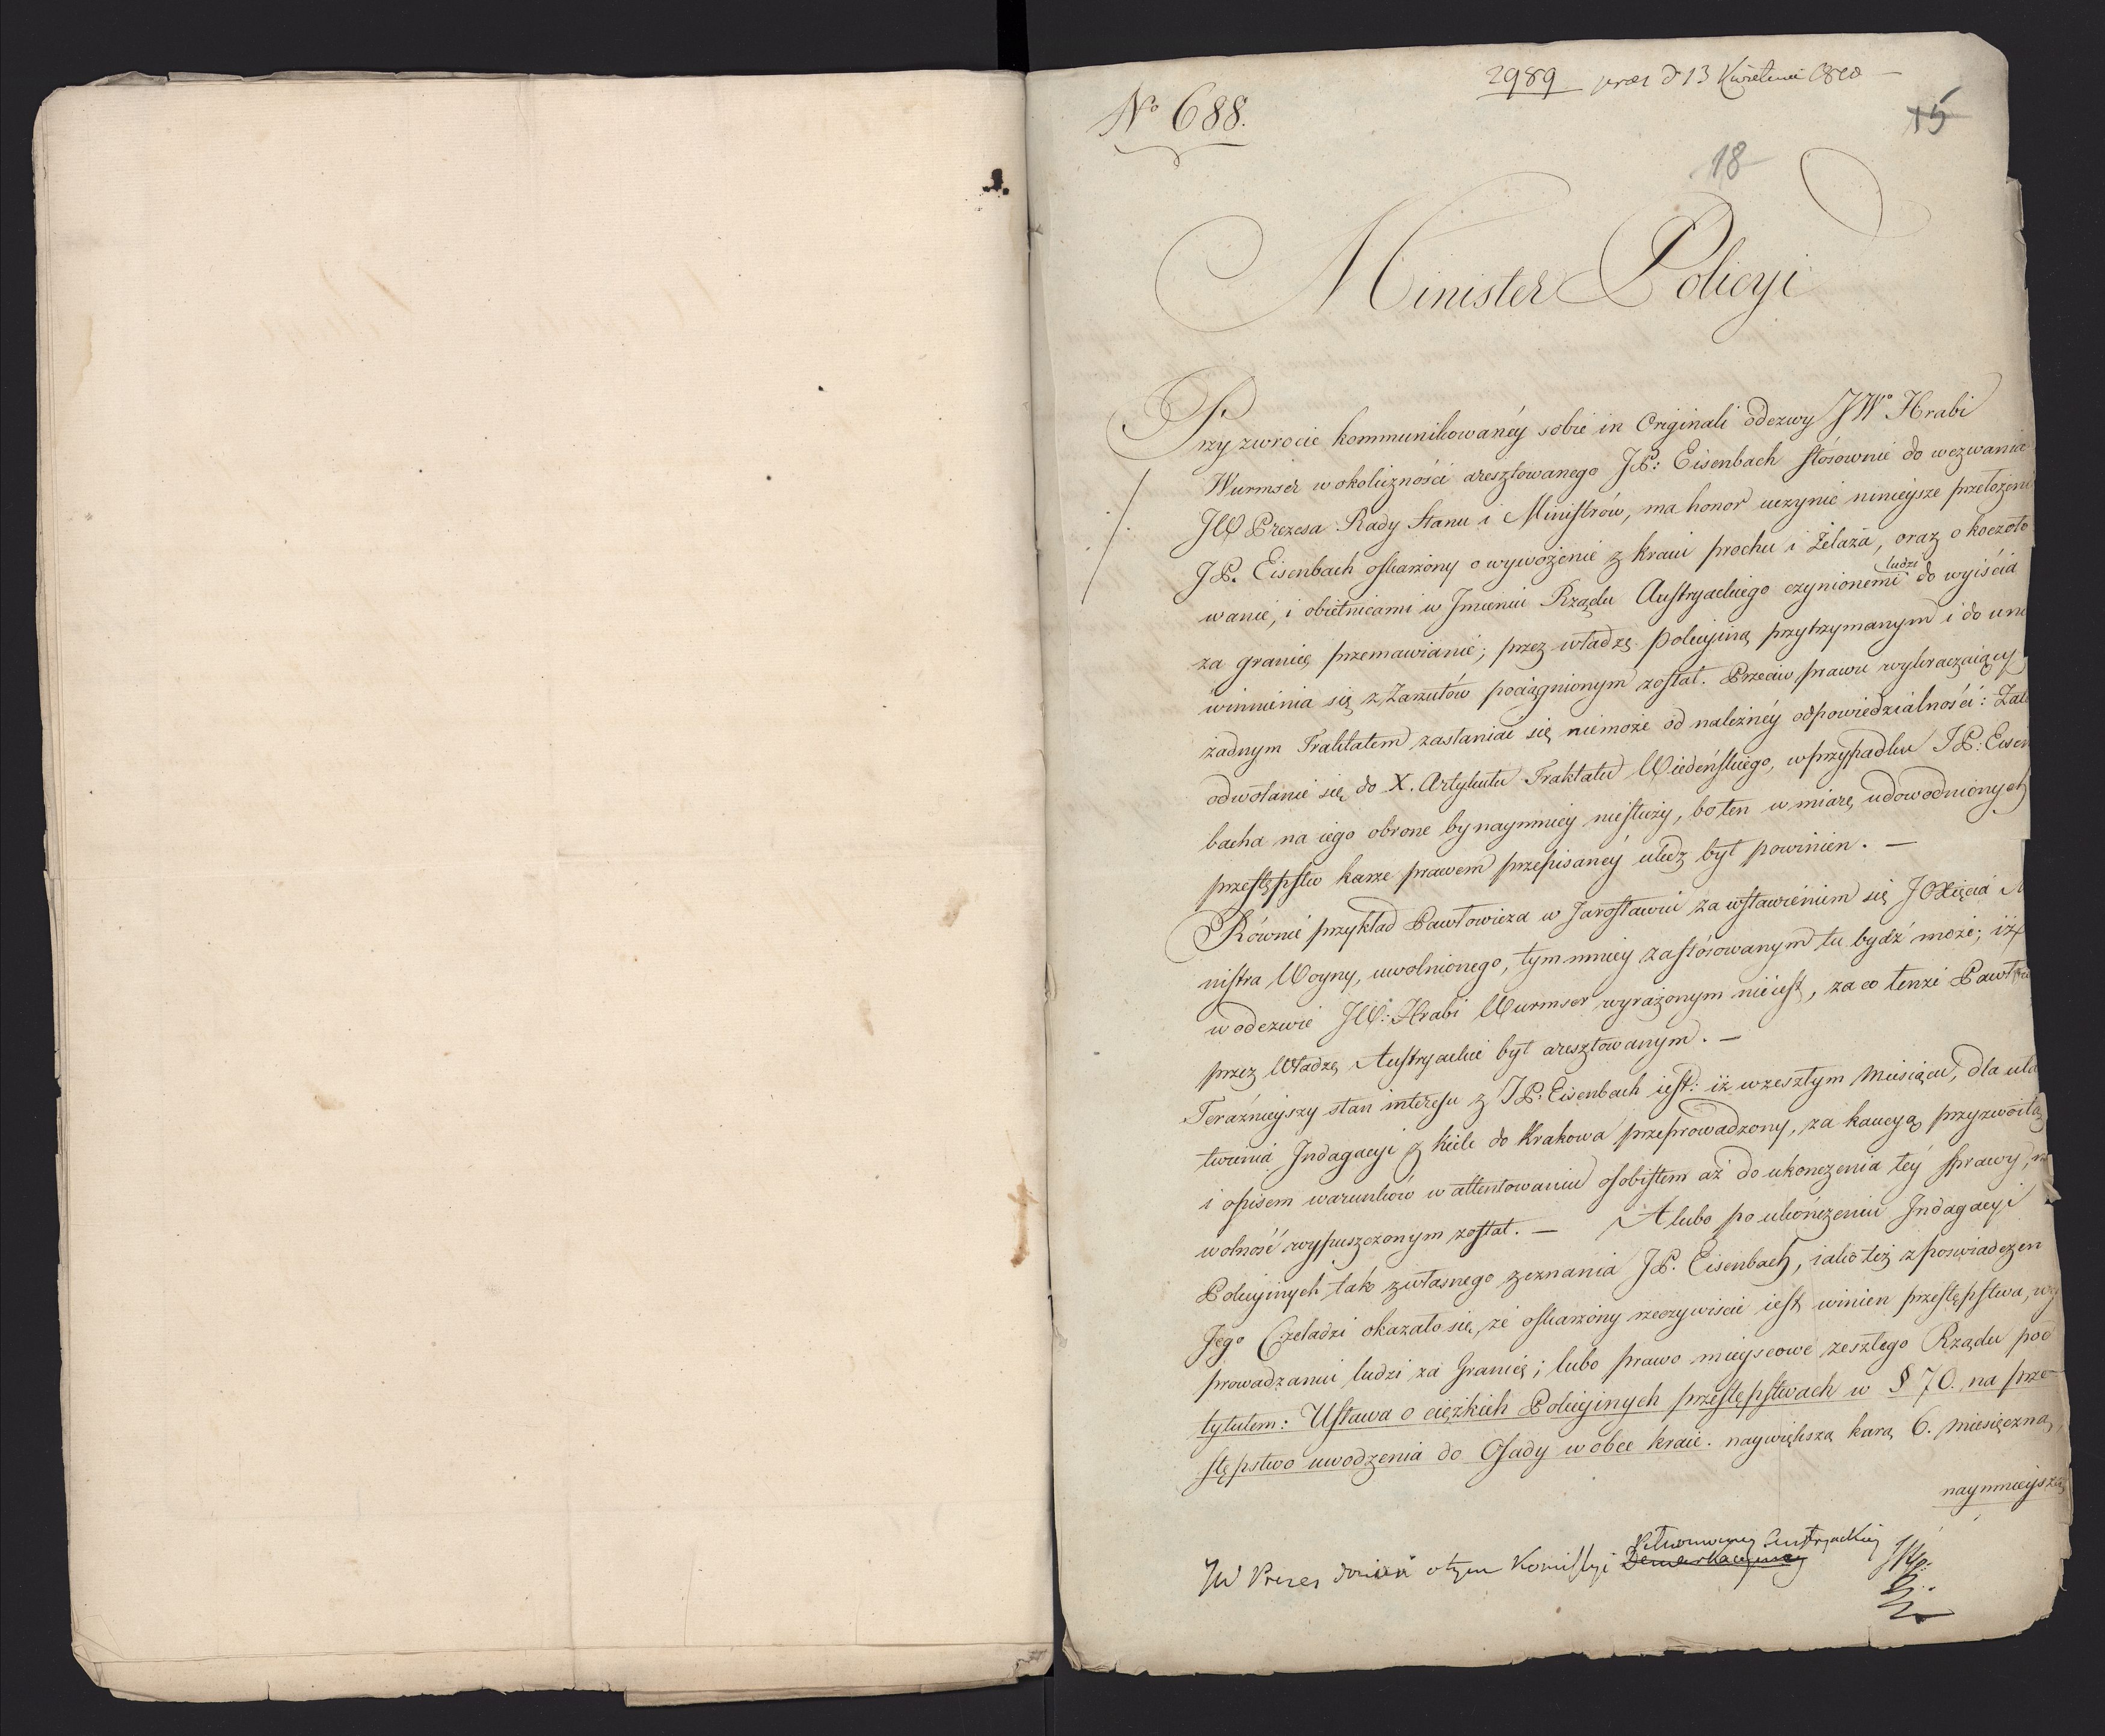 2989 pres d 13 Kwietnia 1810
15
No 688.
18
Minister Policyi
Przy zwrocie kommunikowanéy sobie in Originali odezwy JWo Hrabi
Wurmser w okoliczności aresztowanego JP: Eisenbach stósownie do wezwania
JW Prezesa Rady Stanu i Ministrów, ma honor uczynic ninieysze przełożeni
JP. Eisenbach oskarżony o wywożenie z kraiu prochu i żelaza, oraz o koczoto
wanie, i obietnicami w Jmieniu Rządu Austryackiego czynionemi ludzi do wyiścia
za granicę przemawianie; przez władzę Policyiną przytrzymanym i do une
winnienia się z Zarzutów pociągnionym został. Przeciw prawu wykraczaiący
żadnym Traktatem zasłaniać się niemoże od należnéy odpowiedzialności: Zate
odwołanie się do X. Artykułu Traktatu Wiedeńskiego, w przypadku JP: Eisen
bacha na iego obrone bynaymniey niesłuży, bo ten w miarę udowodnionych
przestępstw karze prawem przepisanéy uledz był powinien. —
Równie przykład Pawłowicza w Jarosławiu za wstawieniem się JOXięcia M
nistra Woyny, uwolnionego, tym mniey zastósowanym tu bydź może; iż
w odezwie JW: Hrabi Wurmser wyrażonym nieiest, za co tenże Pawłow
przez Władzę Austryackie był aresztowanym. —
Teraźnieyszy stan interesu z JP: Eisenbach iest: iż w zeszłym Miesiącu, dla uła
twienia Jndagacyi z Kielc do Krakowa przeprowadzony, za kaucyą przyzwoitą
i opisem warunków w attentowaniu osobistem aż do ukonczenia téy sprawy, na
wolność wypuszczonym został. — A lubo po ukończeniu Jndagacyi
Policyinych tak z własnego zeznania JP. Eisenbach, iako też z poswiadczen
Jego Czeladzi okazało się, że oskarżony rzeczywiscie iest winien przestępstwa, wy
prowadzaniu ludzi za Granicę; lubo prawo mieyscowe zeszłego Rządu pod
tytułem: Ustawa o ciężkich Policyinych przestępstwach w § 70. na prze-
stępstwo uwodzenia do Osady w obce kraie. naywiększą karą 6. miesięczną,
naymnieyszą
JW Prezes doniosł o tym Komissyi Demarkacyiney Austryackiey